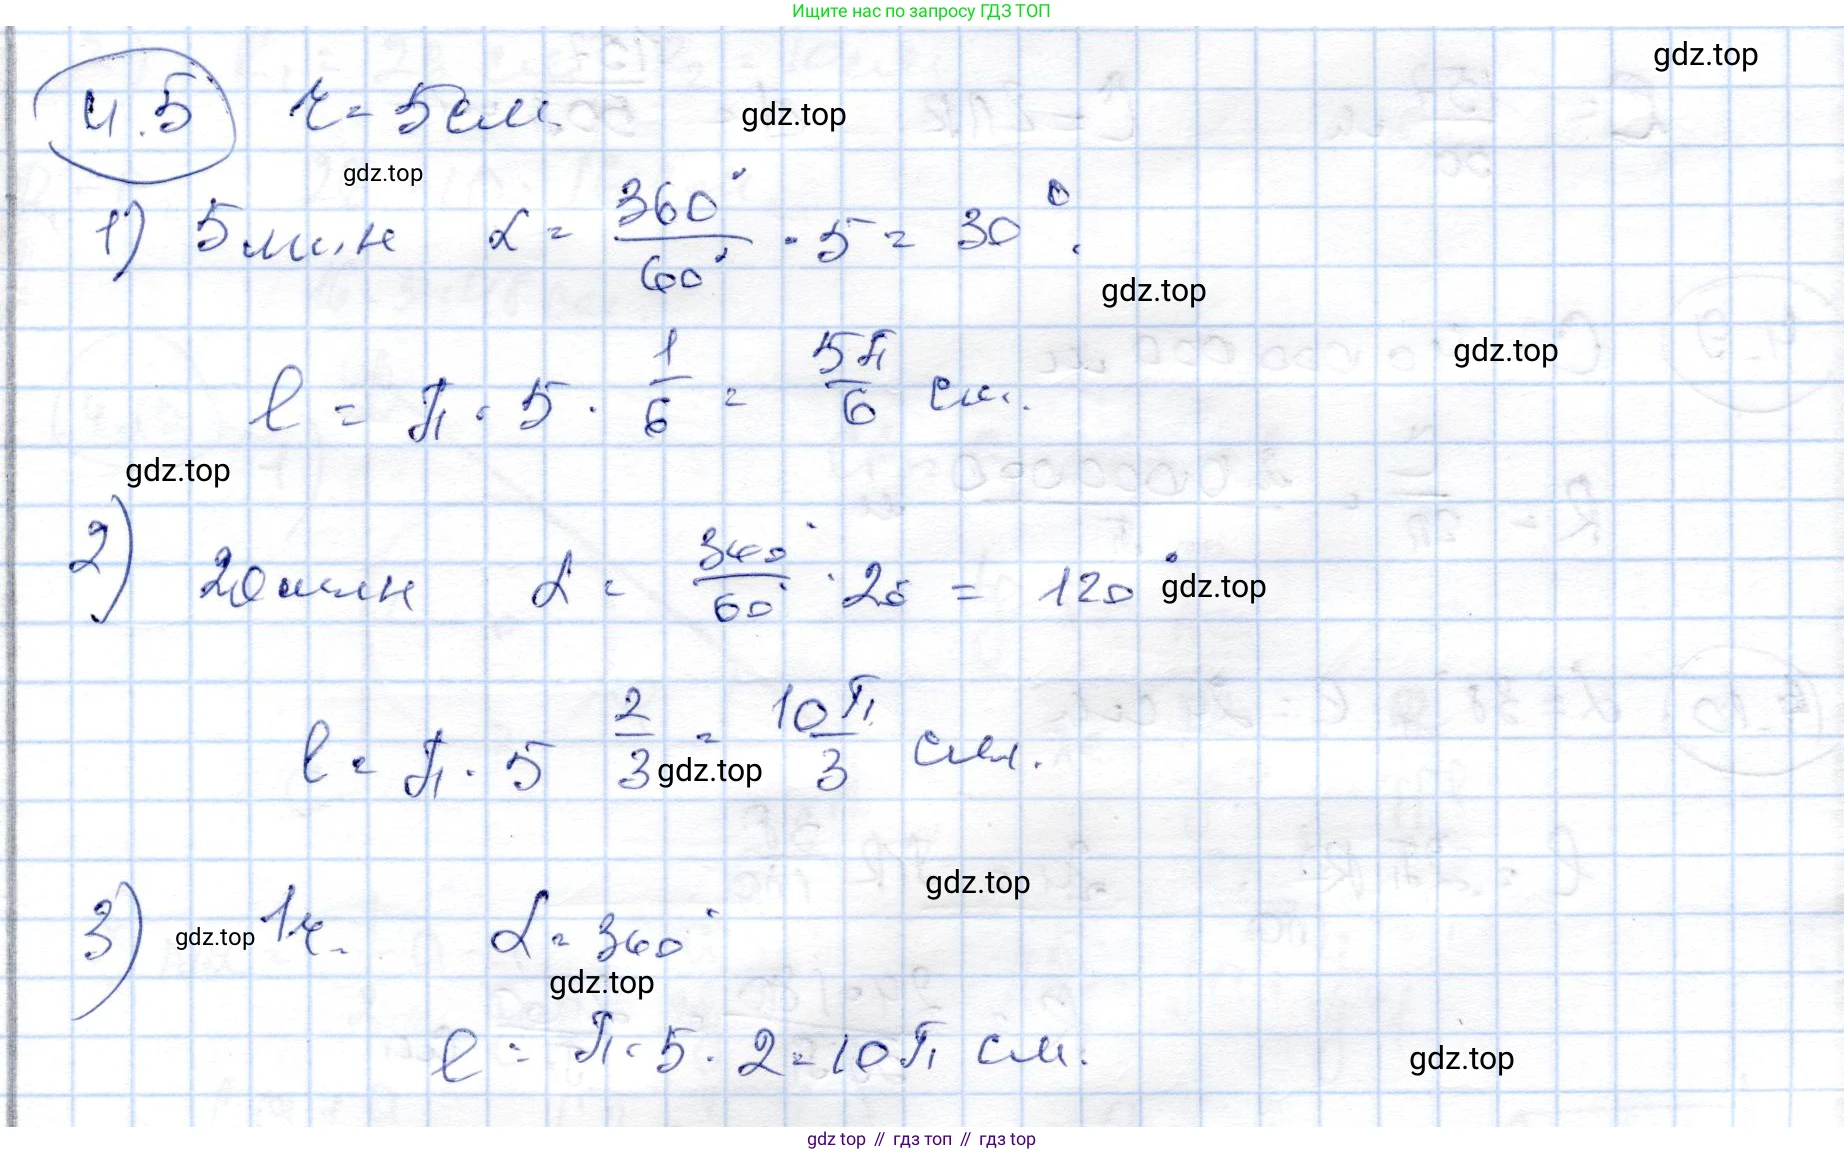 Ищите нас по запросу ГДЗ ТОП
gdz.top
4.5 r = 5 см.
gdz.top
gdz.top
1) 5 мин α = 360°/60' · 5 = 30°.
gdz.top
gdz.top
l = π · 5 · 1/6 = 5π/6 см.
gdz.top
2) 20 мин α = 360°/60' · 20 = 120°
gdz.top
l = π · 5 2/3 = 10π/3 см.
gdz.top
gdz.top
3) 1ч. α = 360°
gdz.top
gdz.top
l = π · 5 · 2 = 10π см.
gdz.top
gdz top // гдз топ // гдз top